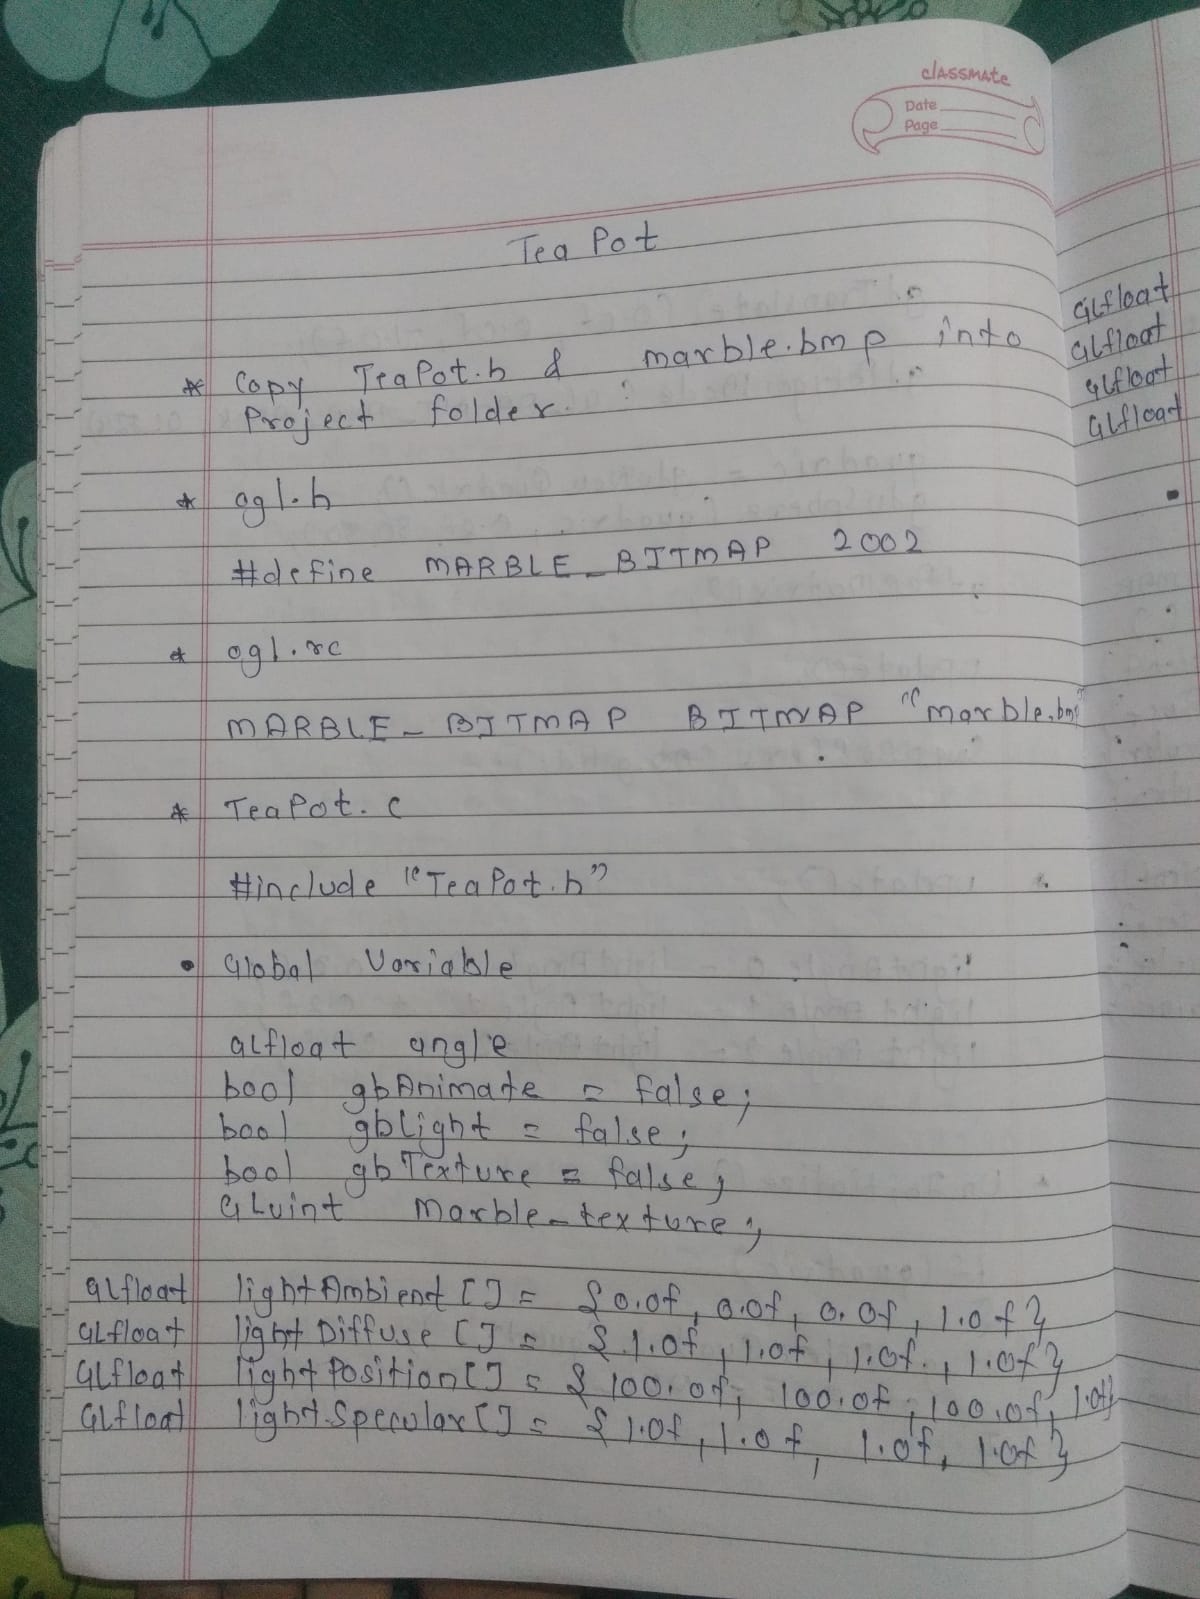 classmate
Date
Page
Tea Pot
* Copy TeaPot.h & marble.bmp into
Project folder.
* ogl.h
#define MARBLE_BITMAP 2002
* ogl.rc
MARBLE_BITMAP BITMAP "marble.bmp"
* TeaPot.c
#include "TeaPot.h"
• Global Variable
GLfloat angle
bool gbAnimate = false;
bool gbLight = false;
bool gbTexture = false;
GLuint marble_texture;
GLfloat lightAmbient[] = {0.0f, 0.0f, 0.0f, 1.0f}
GLfloat lightDiffuse[] = {1.0f, 1.0f, 1.0f, 1.0f}
GLfloat lightPosition[] = {100.0f, 100.0f, 100.0f, 1.0f}
GLfloat lightSpecular[] = {1.0f, 1.0f, 1.0f, 1.0f}
GLfloat
GLfloat
GLfloat
GLfloat